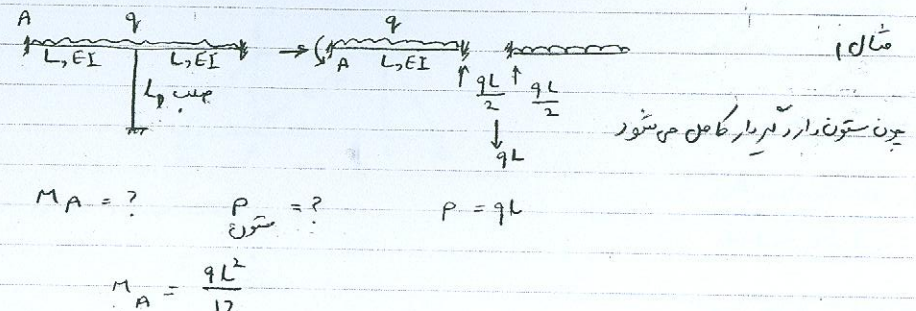 مثال ۱
A q q
L, EI L, EI A L, EI
L, صلب qL/2 qL/2
qL
چون ستون دارد گیردار کامل می‌شود
M_A = ? P ستون = ? P = qL
M_A = qL²/12